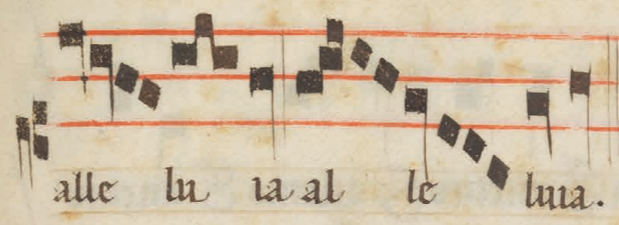 alle lu ia al le luia.